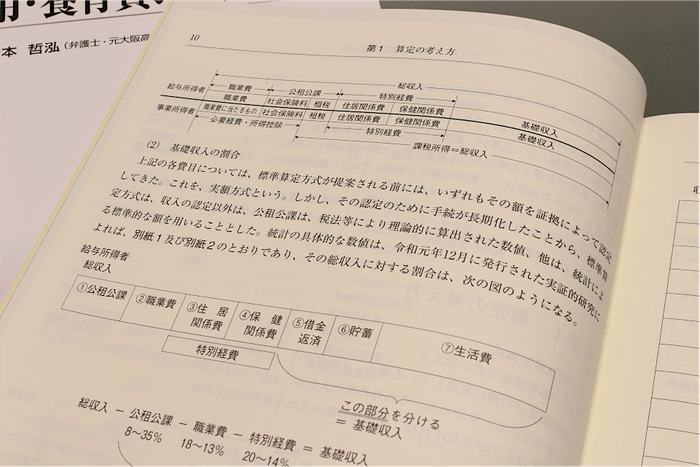 用・養育費
本 哲泓(弁護士・元大阪高
10
第1 算定の考え方
総収入
職業費 公租公課 特別経費
給与所得者 職業費 社会保険料 租税 住居関係費 保健関係費 基礎収入
事業所得者 職業費に当たるもの 社会保険料 租税 住居関係費 保健関係費 基礎収入
必要経費・所得控除 特別経費
課税所得=総収入
(2) 基礎収入の割合
上記の各費目については、標準算定方式が提案される前には、いずれもその額を証拠によって認定
してきた。これを、実額方式という。しかし、その認定のために手続が長期化したことから、標準算
定方式は、収入の認定以外は、公租公課は、税法等により理論的に算出された数値、他は、統計によ
る標準的な額を用いることとした。統計の具体的な数値は、令和元年12月に発行された実証的研究に
よれば、別紙1及び別紙2のとおりであり、その総収入に対する割合は、次の図のようになる。
給与所得者
総収入
①公租公課 ②職業費 ③住居関係費 ④保健関係費 ⑤借金返済 ⑥貯蓄 ⑦生活費
特別経費
この部分を分ける
=基礎収入
総収入 − 公租公課 − 職業費 − 特別経費 = 基礎収入
8~35% 18~13% 20~14%